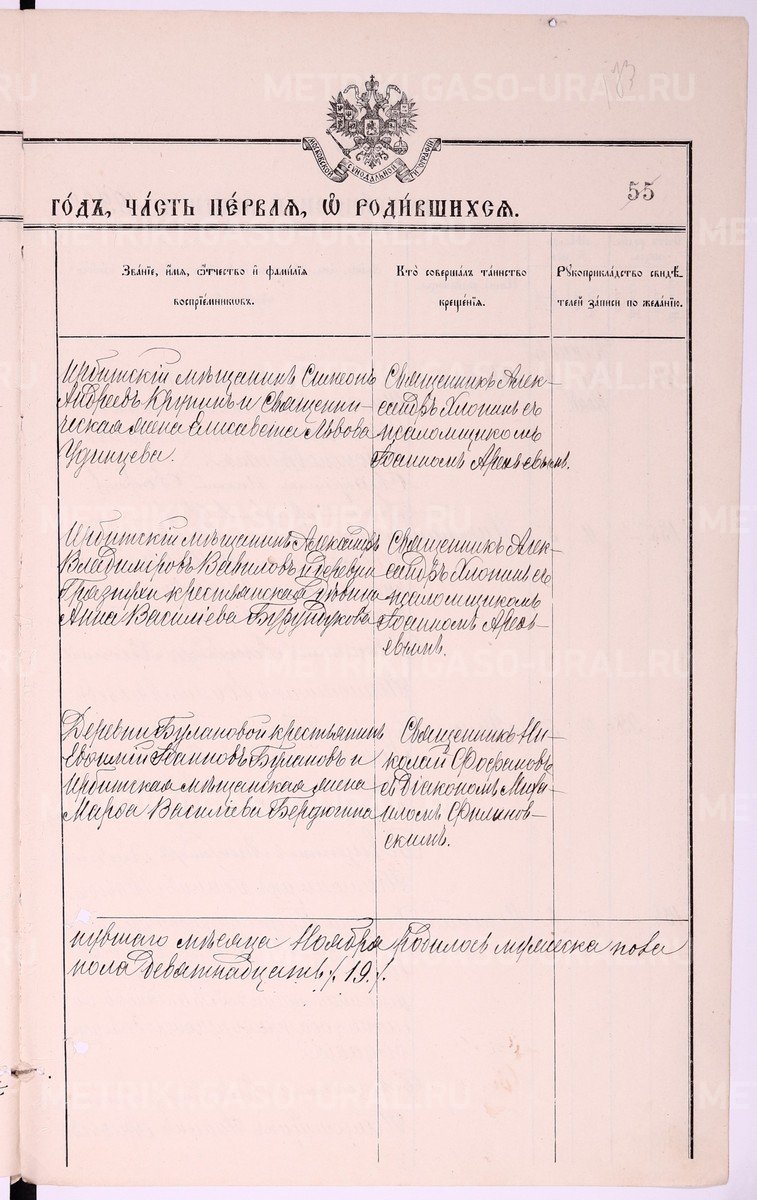 METRIKI.GASO-URAL.RU
133
МОСКОВСКОЙ СѴНОДАЛЬНОЙ ТИПОГРАФІИ
55
ГО́ДЪ, ЧА́СТЬ ПЕ́РВАЯ, Ѡ҆ РОДИ́ВШИХСЯ.
Зва́ніе, и҆́мя, ѻ҆́тчество и҆ фами́лїя
воспрїе́мниковъ.
Кто̀ соверша́лъ та́инство
креще́нїя.
Рꙋкоприкла́дство свидѣ́-
телей за́писи по жела́нїю.
Ирбитскій мѣщанинъ Симеонъ
Андреевъ Крупинъ и Священни-
ческая жена Елисавета Львова
Удинцева.
Священникъ Алек-
сандръ Хлопинъ съ
псаломщикомъ
Іоанномъ Арсеньевымъ.
Ирбитскій мѣщанинъ Александръ
Владиміровъ Вавиловъ и деревни
Грязнухи крестьянская дѣвица
Анна Василіева Бурундукова
Священникъ Алек-
сандръ Хлопинъ съ
псаломщикомъ
Іоанномъ Арсень-
евымъ.
Деревни Булановой крестьянинъ
Евѳимій Іоанновъ Булановъ и
Ирбитская мѣщанская жена
Марѳа Василіева Бердюгина
Священникъ Ни-
колай Ѳофановъ
съ Діакономъ Миха-
иломъ Филинов-
скимъ.
нувшаго мѣсяца Ноября родилось мужеска пова
пола девятнадцать /. 19 /.